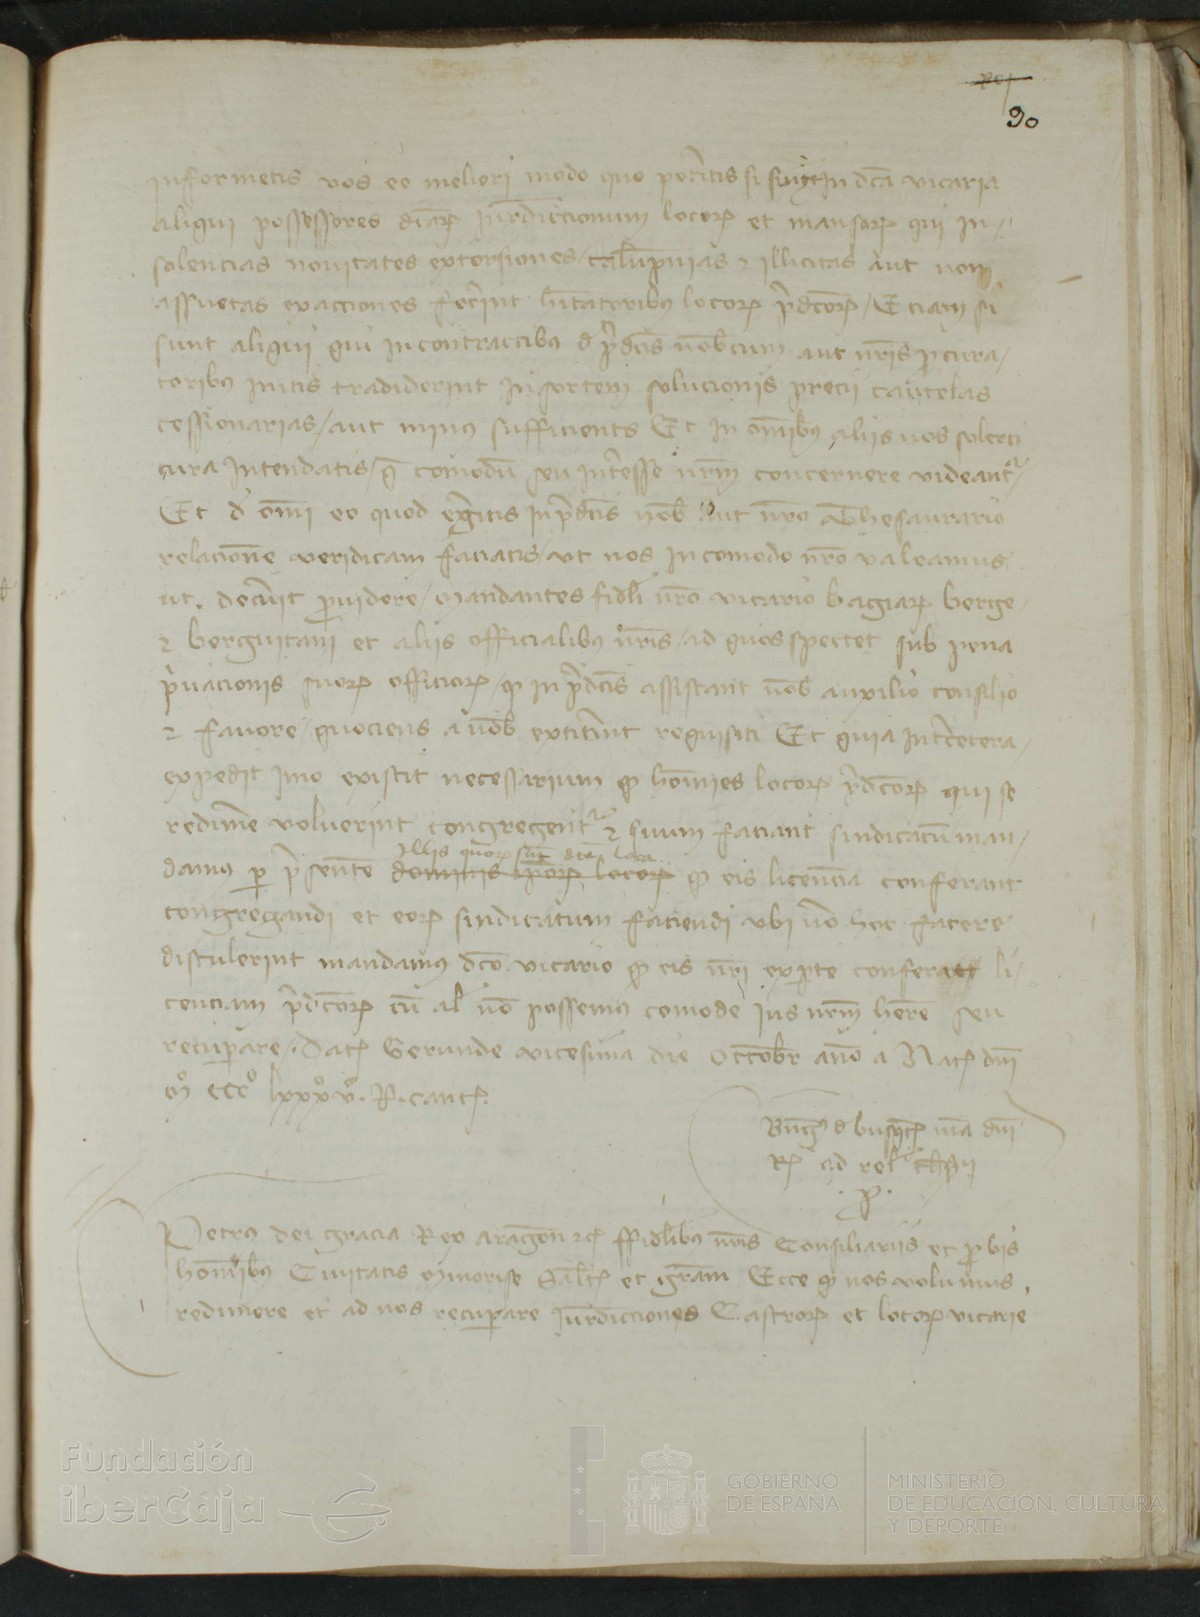 90
informetis vos eo meliori modo quo poteritis si sunt in dca vicaria
aliqui possessores dcarum Iurisdiccionum locorum et mansorum qui in-
solencias novitates extorsiones / calumpnias et illicitas aut non
assuetas exacciones fecerint habitatoribus locorum predictorum / Etiam si
sunt aliqui qui in contractibus de predictis vobiscum aut nostris procura/
toribus initis tradiderint in sortem solucionis precii cautelas
cessionarias / aut minus sufficientes Et in omnibus aliis vos solerti
cura intendatis / que comodum seu interesse nostrum concernere videantur
Et de omni eo quod egeritis in predictis nobis aut nostro Thesaurario
relacionem veridicam faciatis / ut nos in comodo nostro valeamus
ut decuerit providere / mandantes fideli nostro vicario bagiarum berge
et berguitani et aliis officialibus nostris / ad quos spectet sub pena
privacionis suorum officiorum / quod in predictis assistant vobis auxilio consilio
et favore / quociens a vobis extiterint requisiti Et quia inter cetera /
expedit imo existit necessarium quod homines locorum predictorum qui se
redimere voluerint congregentur et suum faciant sindicatum man/
illis quorum sunt dicta loca
damus per presentem dominis ipsorum locorum quod eis licenciam conferant
congregandi et eorum sindicatum faciendi ubi vero hoc facere
distulerint mandamus dicto vicario quod eis nostri ex parte conferat li/
cenciam predictorum cum aliter non possemus comode ius nostrum habere seu
recuperare /. Datum Gerunde vicesima die Octobris anno a Nat. domini
Mº CCCº lxxxº vº. R. cant.
de busquets mandato domini
Regis ad rel.
.P.
Petrus dei gracia Rex Aragonum etc fidelibus nostris Consiliariis et probis
hominibus Civitatis Minorise Salutem et graciam Ecce quod nos volumus
redimere et ad nos recuperare Iurisdicciones Castrorum et locorum vicarie
Fundación
iberCaja
GOBIERNO
DE ESPAÑA
MINISTERIO
DE EDUCACIÓN, CULTURA
Y DEPORTE